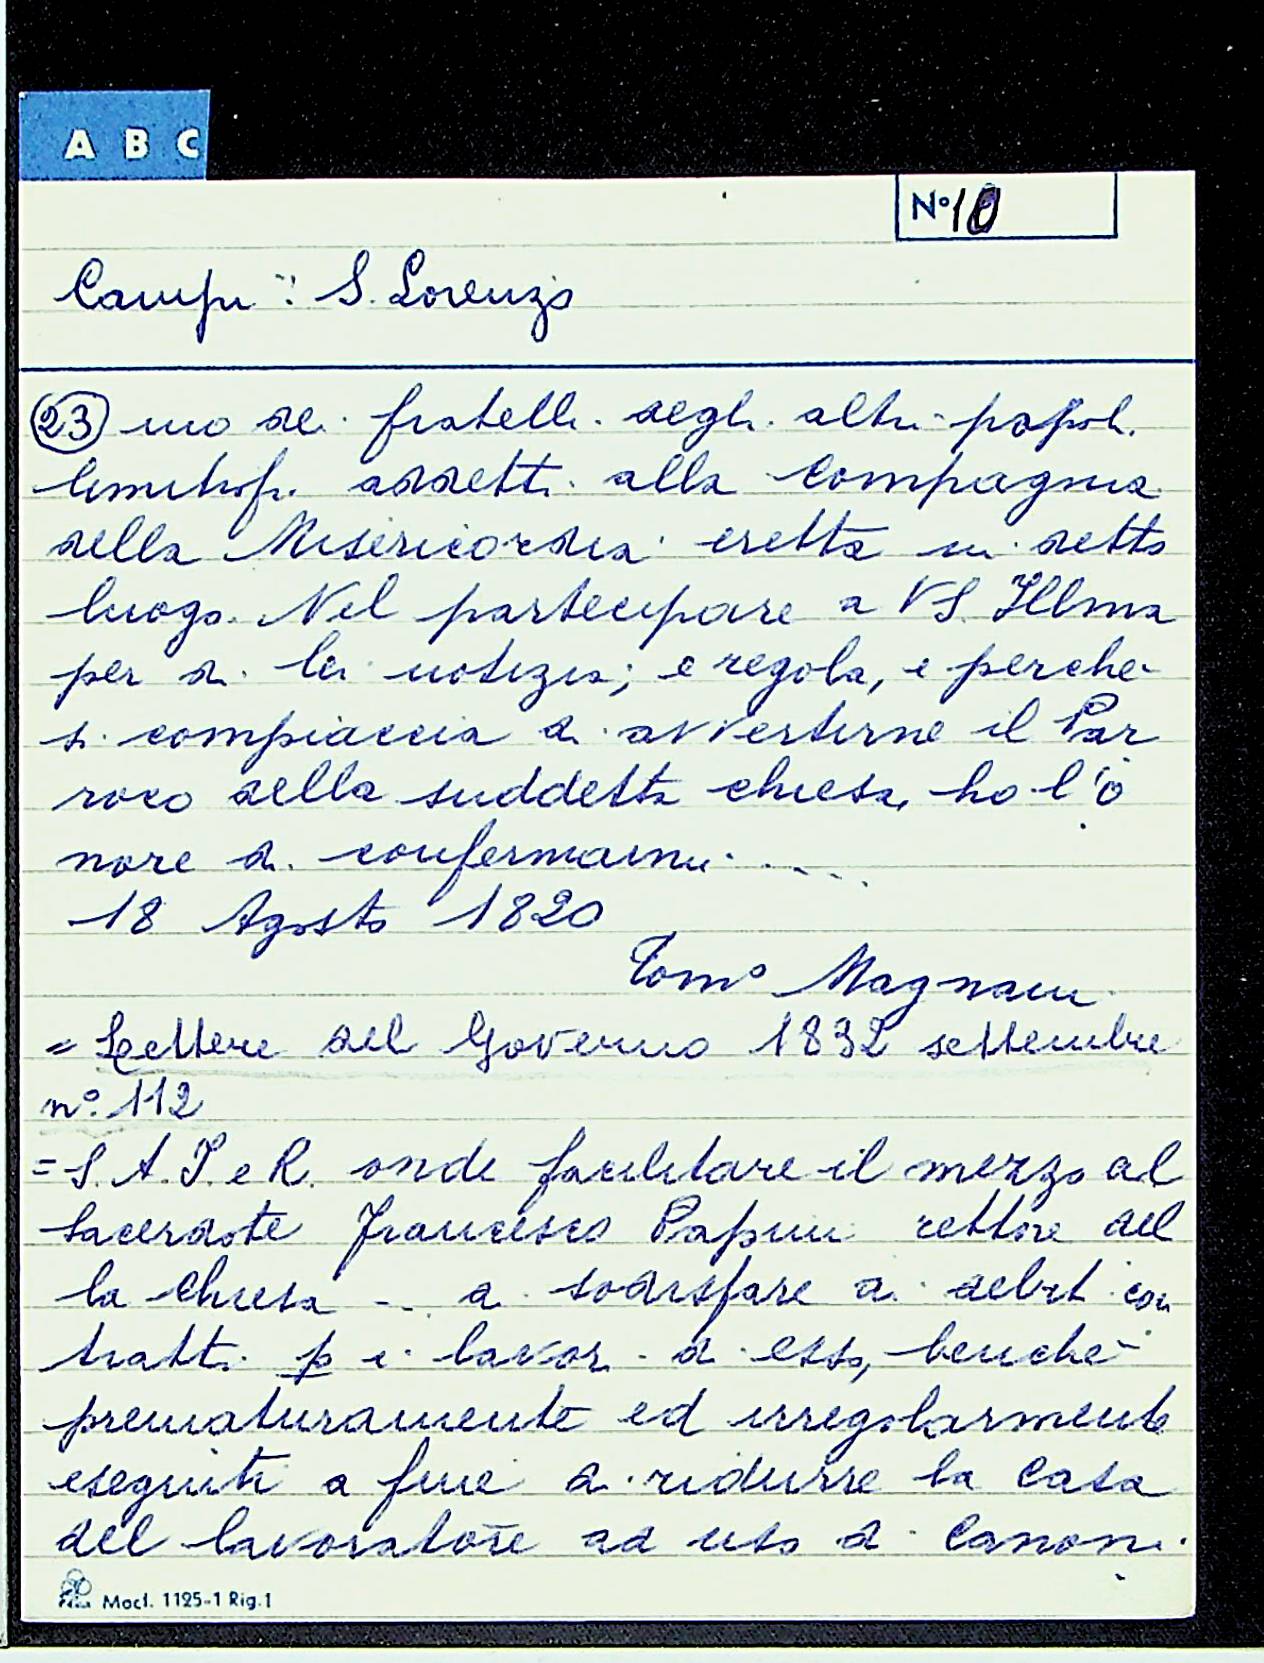 A B C
N° 10
Campi: S. Lorenzo
23 uno dei fratelli degli altri popoli
limitrofi addetti alla Compagnia
della Misericordia eretta in detto
luogo. Nel partecipare a VS. Illma
per di lei notizia; e regola, e perchè
si compiaccia di avvertirne il Par
roco della suddetta chiesa, ho l'o
nore di confermarmi ....
18 Agosto 1820
Tom° Magnani
= Lettere del Governo 1832 settembre
n°. 112
= S. A. I. e R. onde facilitare il mezzo al
sacerdote Francesco Papini rettore del
la Chiesa .. di sodisfare ai debiti con
tratti p i lavori di esso, benchè
prematuramente ed irregolarmente
eseguiti a fine di ridurre la casa
del lavoratore ad uso di Canoni
Mod. 1125-1 Rig. 1